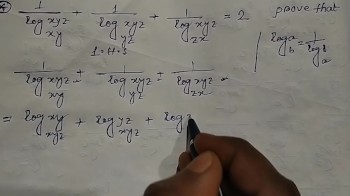 1/log_xy xyz + 1/log_yz xyz + 1/log_zx xyz = 2 prove that
L.H.S
log_b a = 1/log_a b
1/log_xy xyz + 1/log_yz xyz + 1/log_zx xyz
= log_xyz xy + log_xyz yz + log